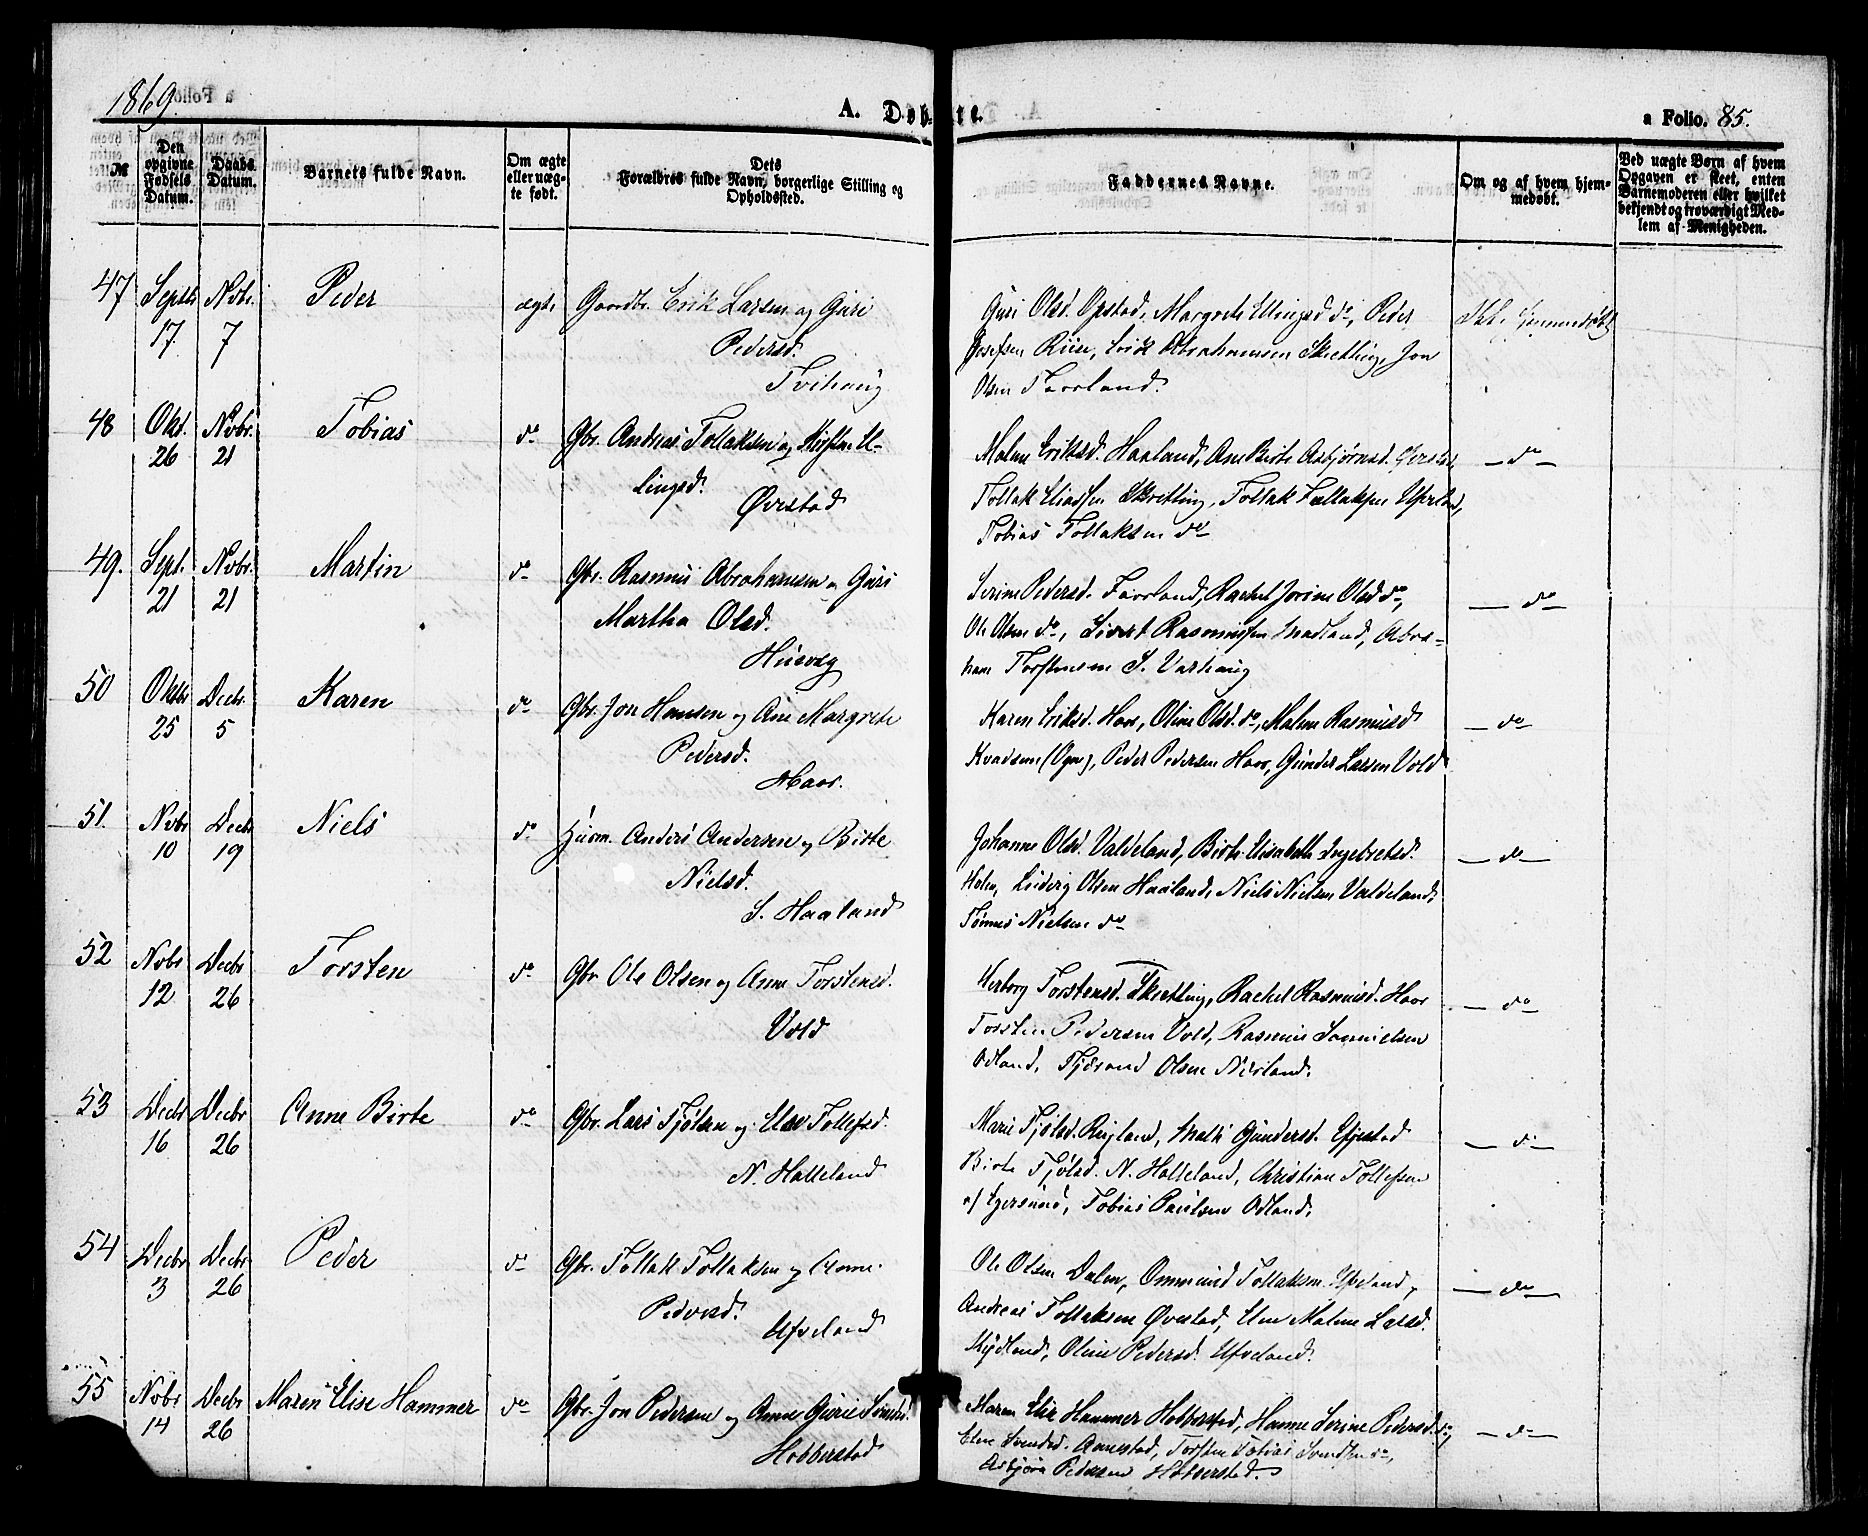 1869.
A. Døbte.
a Folio. 85.
№
Den opgivne Fødsels Datum.
Daabs Datum.
Barnets fulde Navn.
Om ægte eller uægte født.
Dets Forældres fulde Navn, borgerlige Stilling og Opholdssted.
Faddernes Navne.
Om og af hvem hjemmedøbt.
Ved uægte Børn af hvem Opgaven er skeet, enten Barnemoderen eller hvilket bekjendt og troværdigt Medlem af Menigheden.
47 Septr 17. Nvbr. 7 Peder ægte Gaardbr. Erik Larsen og Guri
Pedersd.
Tvihaug
Guri Olsd. Opstad, Margrete Ellingsd do, Peder
Josefsen Riise, Erik Abrahamsen Skretting, Jon
Olsen Haarland.
48 Okt. 26 Nvbr. 21 Tobias do Gbr. Andreas Tollaksen og Kirstine El-
lingsd.
Øvrstad
Malene Eriksd. Haaland, Ane Birte Asbjørnsd.
Tollak Eliassen Skretting, Tollak Tollaksen
Tobias Tollaksen do
— do —
49. Sept. 21 Nvbr. 21 Martin do Gbr. Rasmus Abrahamsen og Guri
Martha Olsd.
Husvæg
Serine Pedersd. Haarland, Rachel Jorine Olsd do,
Ole Olsen do, Sivert Rasmussen Madland, Abra-
ham Torstensen S. Varhaug
— do —
50 Oktbr 25 Decbr. 5 Karen do Gbr. Jon Hansen og Ane Margrete
Pedersd.
Haar.
Karen Eriksd. Haar, Oline Olsd. do, Malene Rasmusd
Kvadsem (Ogne), Peder Pedersen Haar, Gunder Larsen Vold
— do
51. Nvbr 10 Decbr 19 Niels do Husm. Anders Andersen og Birte
Nielsd.
S. Haaland
Johanne Olsd. Valdeland, Birte Elisabeth Ingebretsd.
Holen, Ludvig Olsen Haaland, Niels Nielsen Valdeland,
Tønnes Nielsen do
— do —
52 Nvbr 12 Decbr 26 Torsten do Gbr. Ole Olsen og Anne Torstensd.
Vold
Herborg Torstensd. Skretting, Rachel Rasmusd. Haar
Torsten Pedersen Vold, Rasmus Samuelsen
Odland, Tjørand Olsen Nærland.
— do —
53 Decbr 16 Decbr 26 Anne Birte do Gbr. Lars Tjølsen og Else Tollefsd.
N. Halleland
Marie Tjølsd. Rugland, Malli Gundersd. Efjestad
Birte Tjølsd. N. Halleland, Christian Tollefsen
af Egersund, Tobias Paulsen Odland.
— do —
54 Decbr 3 Decbr 26 Peder do Gbr. Tollak Tollaksen og Anne
Pedersd.
Ufveland
Ole Olsen Dalen, Ommund Tollaksen Ufveland,
Andreas Tollaksen Øvrstad, Elen Malene Larsd.
Kydland, Oline Pedersd. Ufveland.
— do —
55 Nvbr 14 Decbr 26 Maren Elise Hammer do Gbr. Jon Pedersen og Anne Gurie Svendsd.
Hobberstad
Maren Elise Hammer Hobberstad, Hanne Serine Pedersd. do,
Elen Svendsd. Aanestad, Torsten Tobias Svendsen do,
Asbjørn Pedersen Hobberstad.
— do —